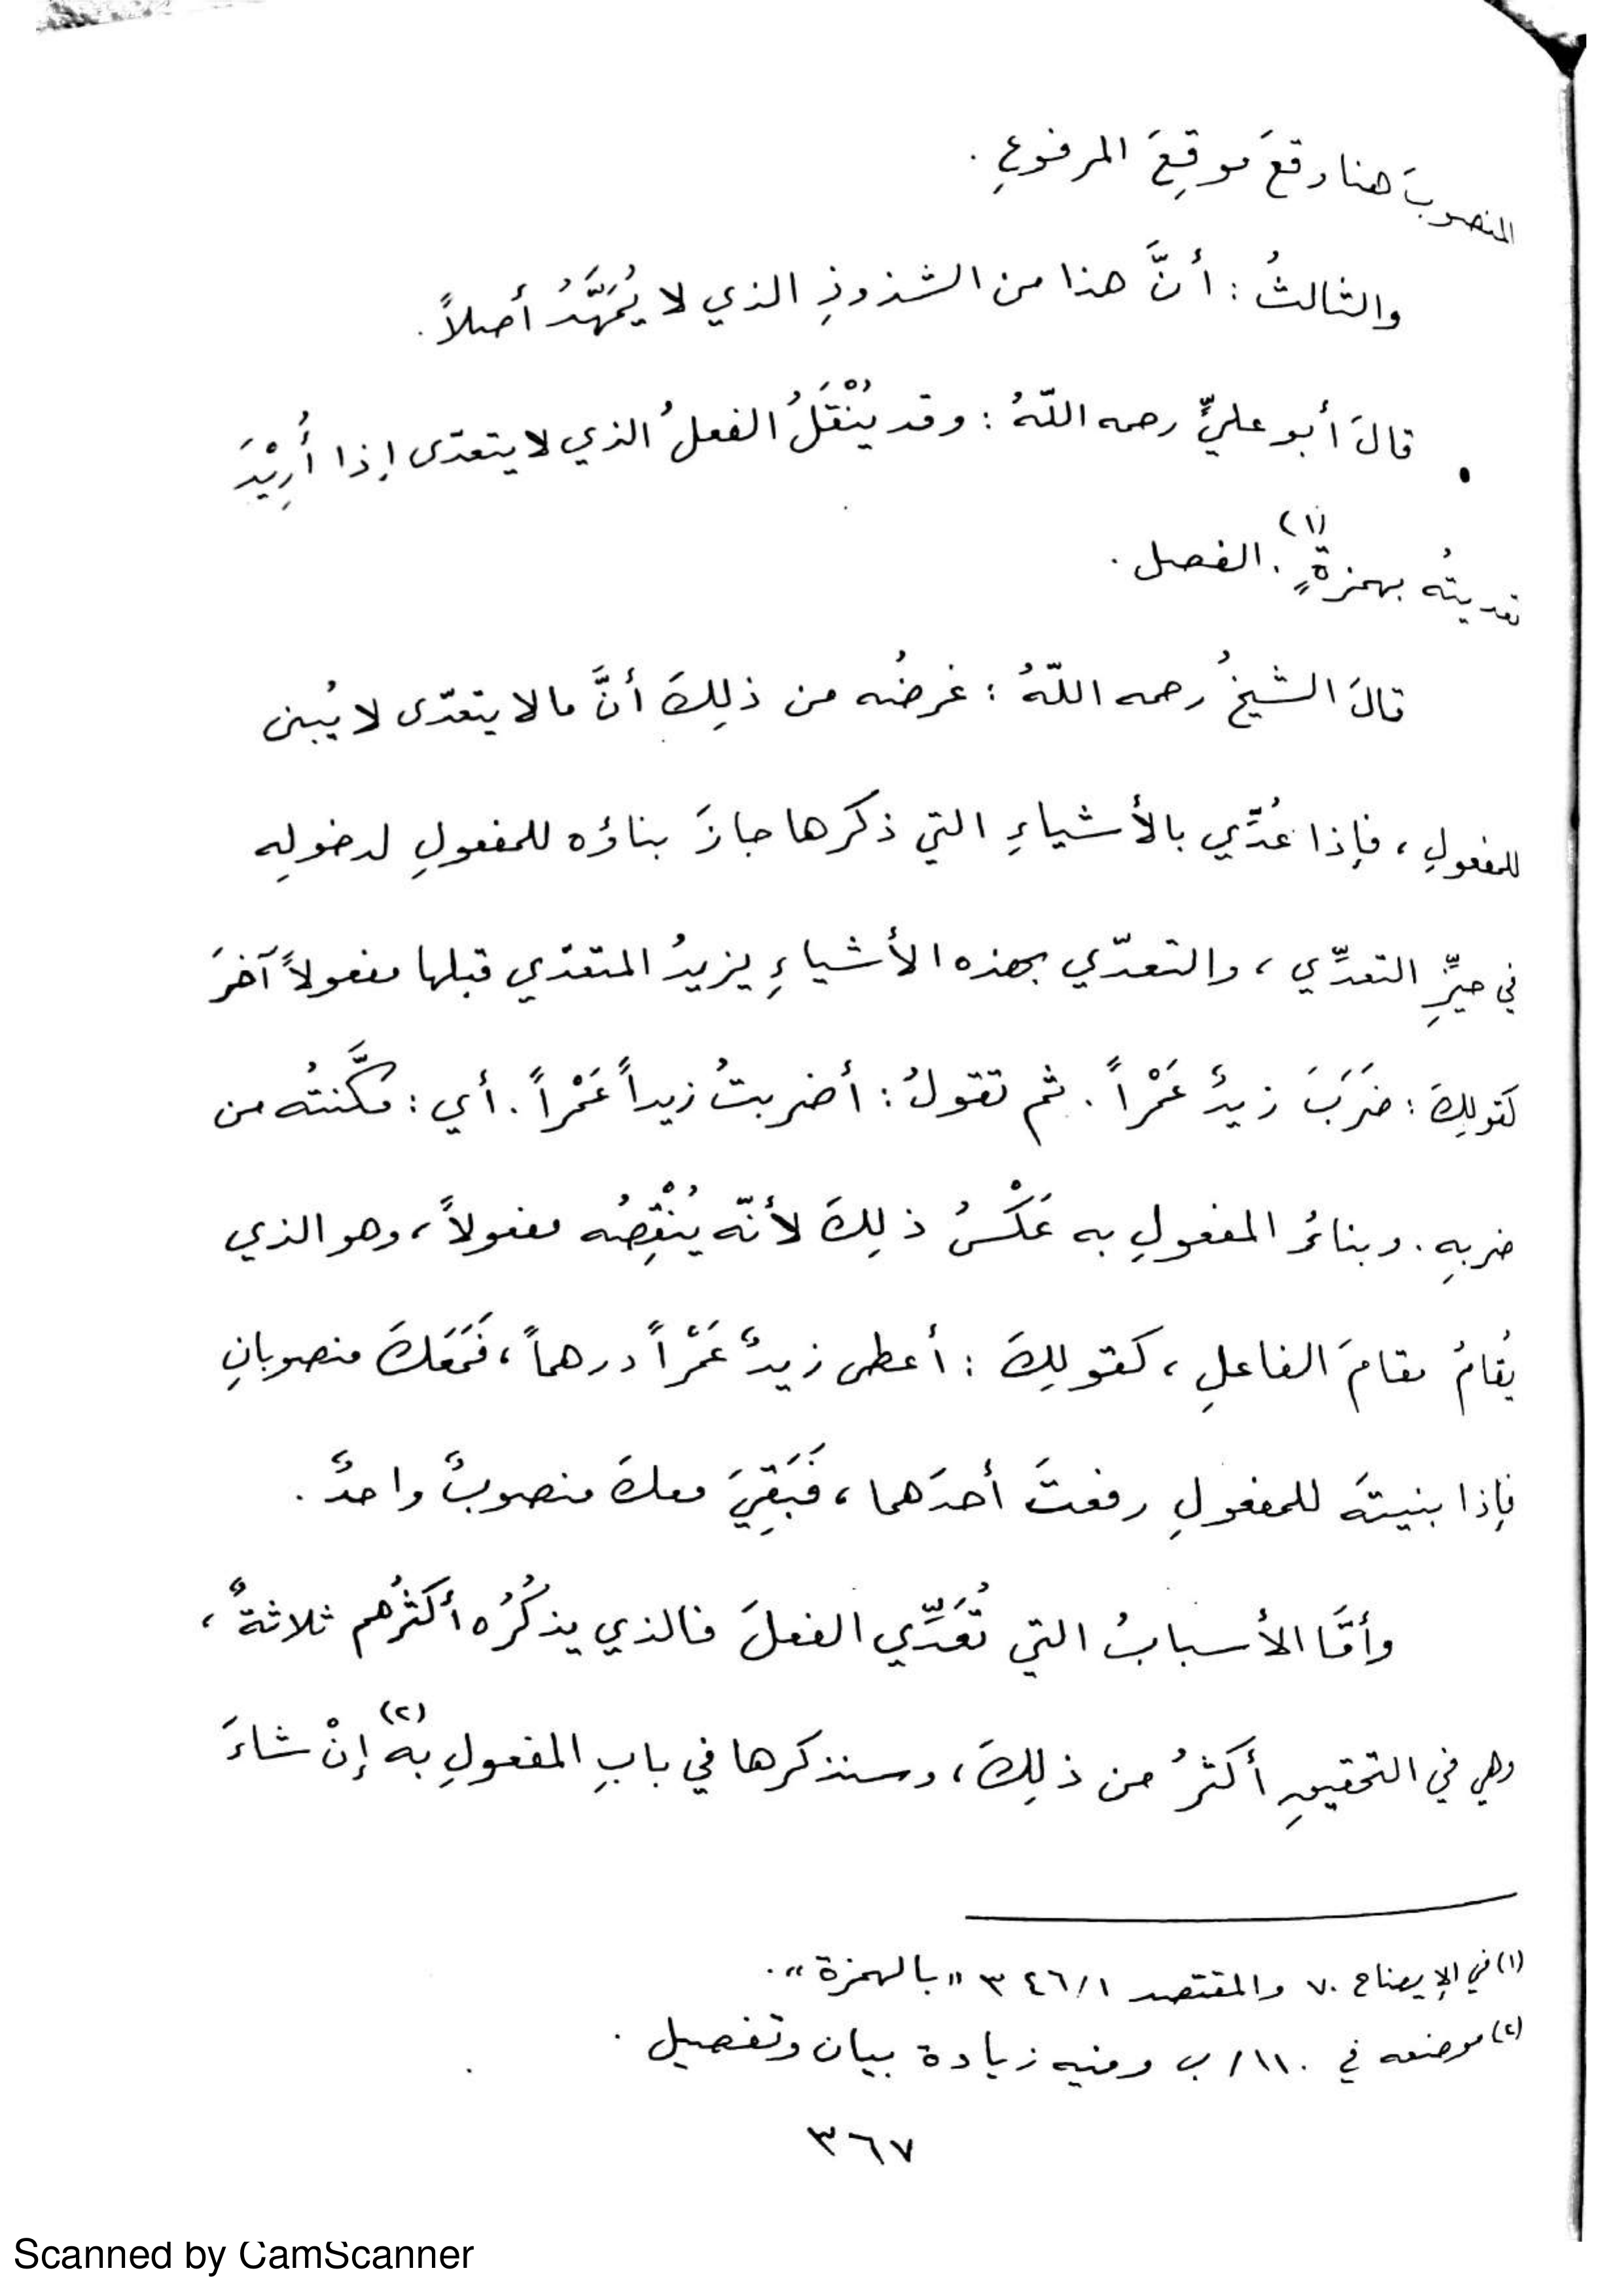 المنصوبَ هنا وقعَ موقِعَ المرفوعِ .
والثالثُ : أنَّ هذا من الشذوذِ الذي لا يُمَهَّدُ أصلاً .
• قالَ أبو عليٍّ رحمه اللّهُ : وقد يُنْقَلُ الفعلُ الذي لا يتعدّى إذا أُرِيْدَ
تعديتُه بهمزةٍ (١) . الفصل .
قالَ الشيخُ رحمه اللّهُ : غرضُه من ذلِكَ أنَّ ما لا يتعدّى لا يُبنى
للمفعولِ ، فإذا عُدِّي بالأشياءِ التي ذكرها جازَ بناؤه للمفعولِ لدخولِه
في حيِّزِ التعدِّي ، والتعدّي بهذه الأشياءِ يزيدُ المتعدّي قبلها مفعولاً آخرَ
كقولِكَ : ضَرَبَ زيدٌ عَمْراً . ثم تقولُ : أضربتُ زيداً عَمْراً . أي : مكَّنتُه من
ضربِه . وبناءُ المفعولِ به عَكْسُ ذلِكَ لأنّه يُنْقِصُه مفعولاً ، وهو الذي
يُقامُ مقامَ الفاعلِ ، كقولِكَ : أعطى زيدٌ عَمْراً درهماً ، فَمَعَكَ منصوبانِ
فإذا بنيتَه للمفعولِ رفعتَ أحدَهما ، فَبَقِيَ معكَ منصوبٌ واحدٌ .
وأمَّا الأسبابُ التي تُعَدِّي الفعلَ فالذي يذكُرُه أكثرُهم ثلاثةٌ ،
وهي في التحقيقِ أكثرُ من ذلِكَ ، وسنذكرها في بابِ المفعولِ به (٢) إنْ شاءَ
(١) في الإيضاح ٧٠ والمقتصد ٣٤٦/١ " بالهمزة " .
(٢) موضعه في ١١٠/ب وفيه زيادة بيان وتفصيل .
٣٦٧
Scanned by CamScanner